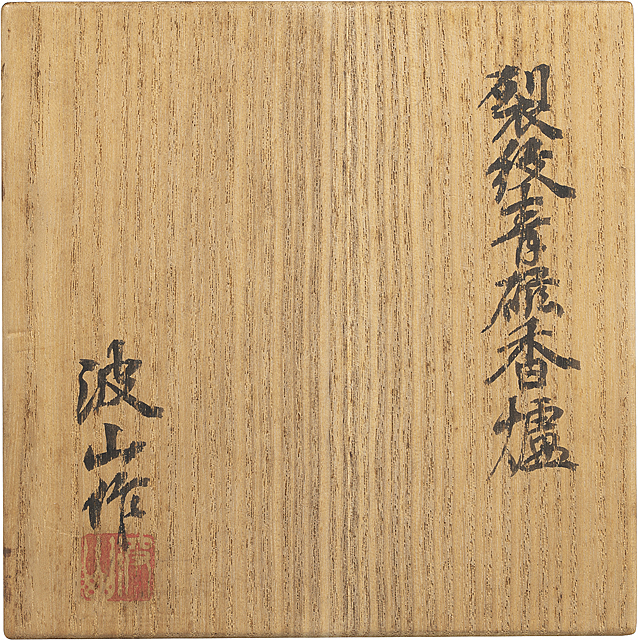 裂紋青磁香爐
波山作
波山